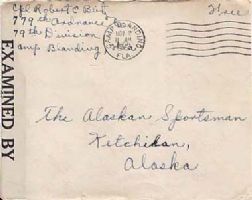 Cpl Robert C
779th Ordnance
79th Division
Camp Blanding
Free
CAMP BLANDING
NOV
FLA.
EXAMINED BY
The Alaskan Sportsman
Ketchikan,
Alaska